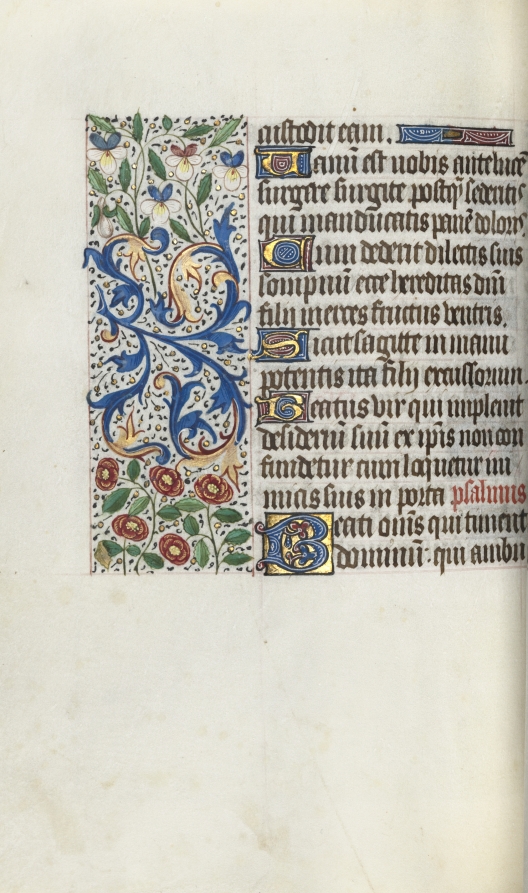 custodit eam.
Vanum est vobis ante lucẽ
surgere surgite postq̃ sederitis
qui manducatis panẽ doloris
Cum dederit dilectis suis
sompnũ ecce hereditas dñi
filij merces fructus ventris.
Sicut sagitte in manu
potentis ita filij excussorum.
Beatus vir qui implevit
desideriũ suũ ex ip̃is non con
fundetur cum loquetur ini
micis suis in porta psalmus
Beati om̃s qui timent
dominum. qui ambu